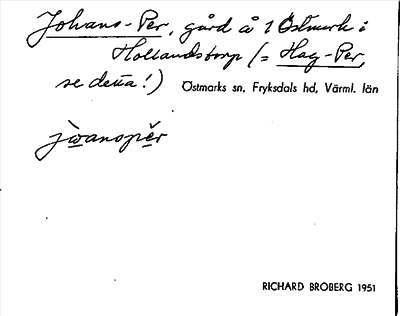 Johans-Per, gård å 1 Östmark i
Hollandstorp (= Hag-Per,
se detta!) Östmarks sn, Fryksdals hd, Värml. län
jὼanopĕr
RICHARD BROBERG 1951